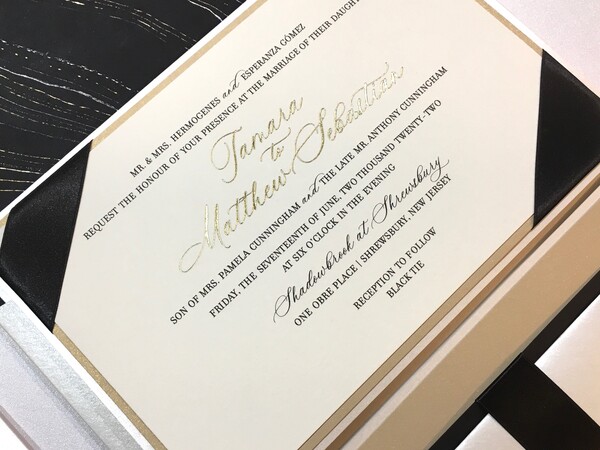 MR. & MRS. HERMOGENES and ESPERANZA GÓMEZ
REQUEST THE HONOUR OF YOUR PRESENCE AT THE MARRIAGE OF THEIR
Tamara
to
Matthew Sebastian
SON OF MRS. PAMELA CUNNINGHAM and THE LATE MR. ANTHONY CUNNINGHAM
FRIDAY, THE SEVENTEENTH OF JUNE, TWO THOUSAND TWENTY-TWO
AT SIX O'CLOCK IN THE EVENING
Shadowbrook at Shrewsbury
ONE OBRE PLACE | SHREWSBURY, NEW JERSEY
RECEPTION TO FOLLOW
BLACK TIE